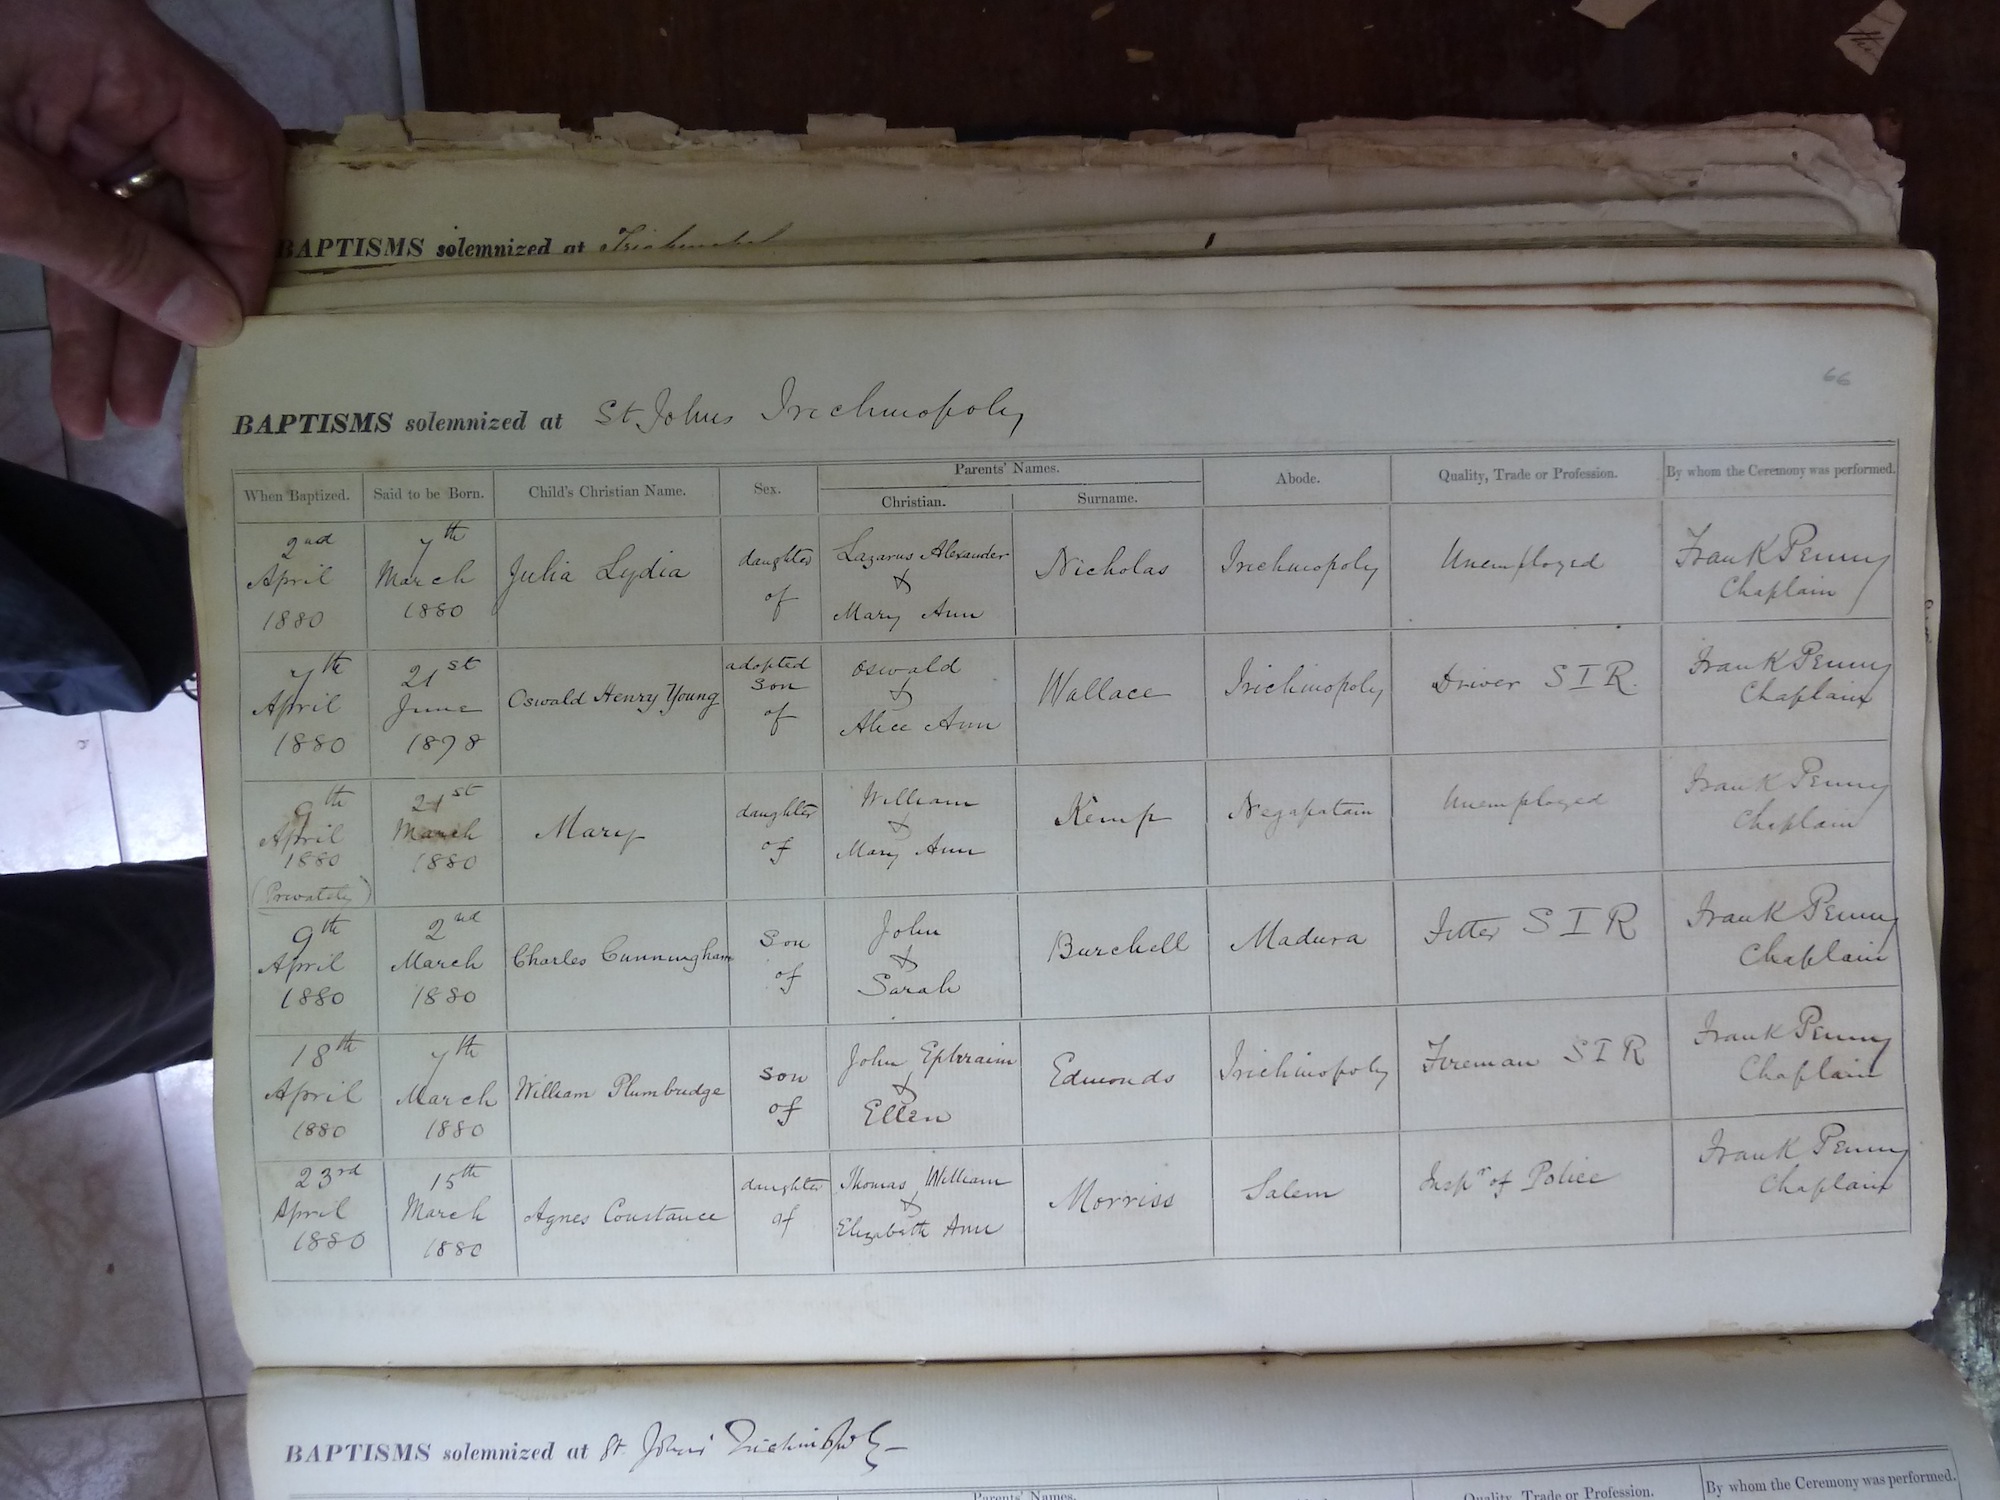 BAPTISMS solemnized at
66
BAPTISMS solemnized at St. Johns Trichinopoly
When Baptized. Said to be Born. Child's Christian Name. Sex. Parents' Names. Abode. Quality, Trade or Profession. By whom the Ceremony was performed.
Christian. Surname.
2nd April 1880 7th March 1880 Julia Lydia daughter of Lazarus Alexander & Mary Ann Nicholas Trichinopoly Unemployed Frank Penny Chaplain
7th April 1880 21st June 1878 Oswald Henry Young adopted son of Oswald & Alice Ann Wallace Trichinopoly Driver S I R. Frank Penny Chaplain
9th April 1880 (Privately) 21st March 1880 Mary daughter of William & Mary Ann Kemp Negapatam Unemployed Frank Penny Chaplain
9th April 1880 2nd March 1880 Charles Cunningham Son of John & Sarah Burchell Madura Fitter S I R Frank Penny Chaplain
18th April 1880 7th March 1880 William Plumbridge son of John Ephraim & Ellen Edmonds Trichinopoly Fireman S I R Frank Penny Chaplain
23rd April 1880 15th March 1880 Agnes Constance daughter of Thomas William & Elizabeth Ann Morriss Salem Inspr of Police Frank Penny Chaplain
BAPTISMS solemnized at St. Johns' Trichinopoly
Parents' Names. Quality, Trade or Profession. By whom the Ceremony was performed.